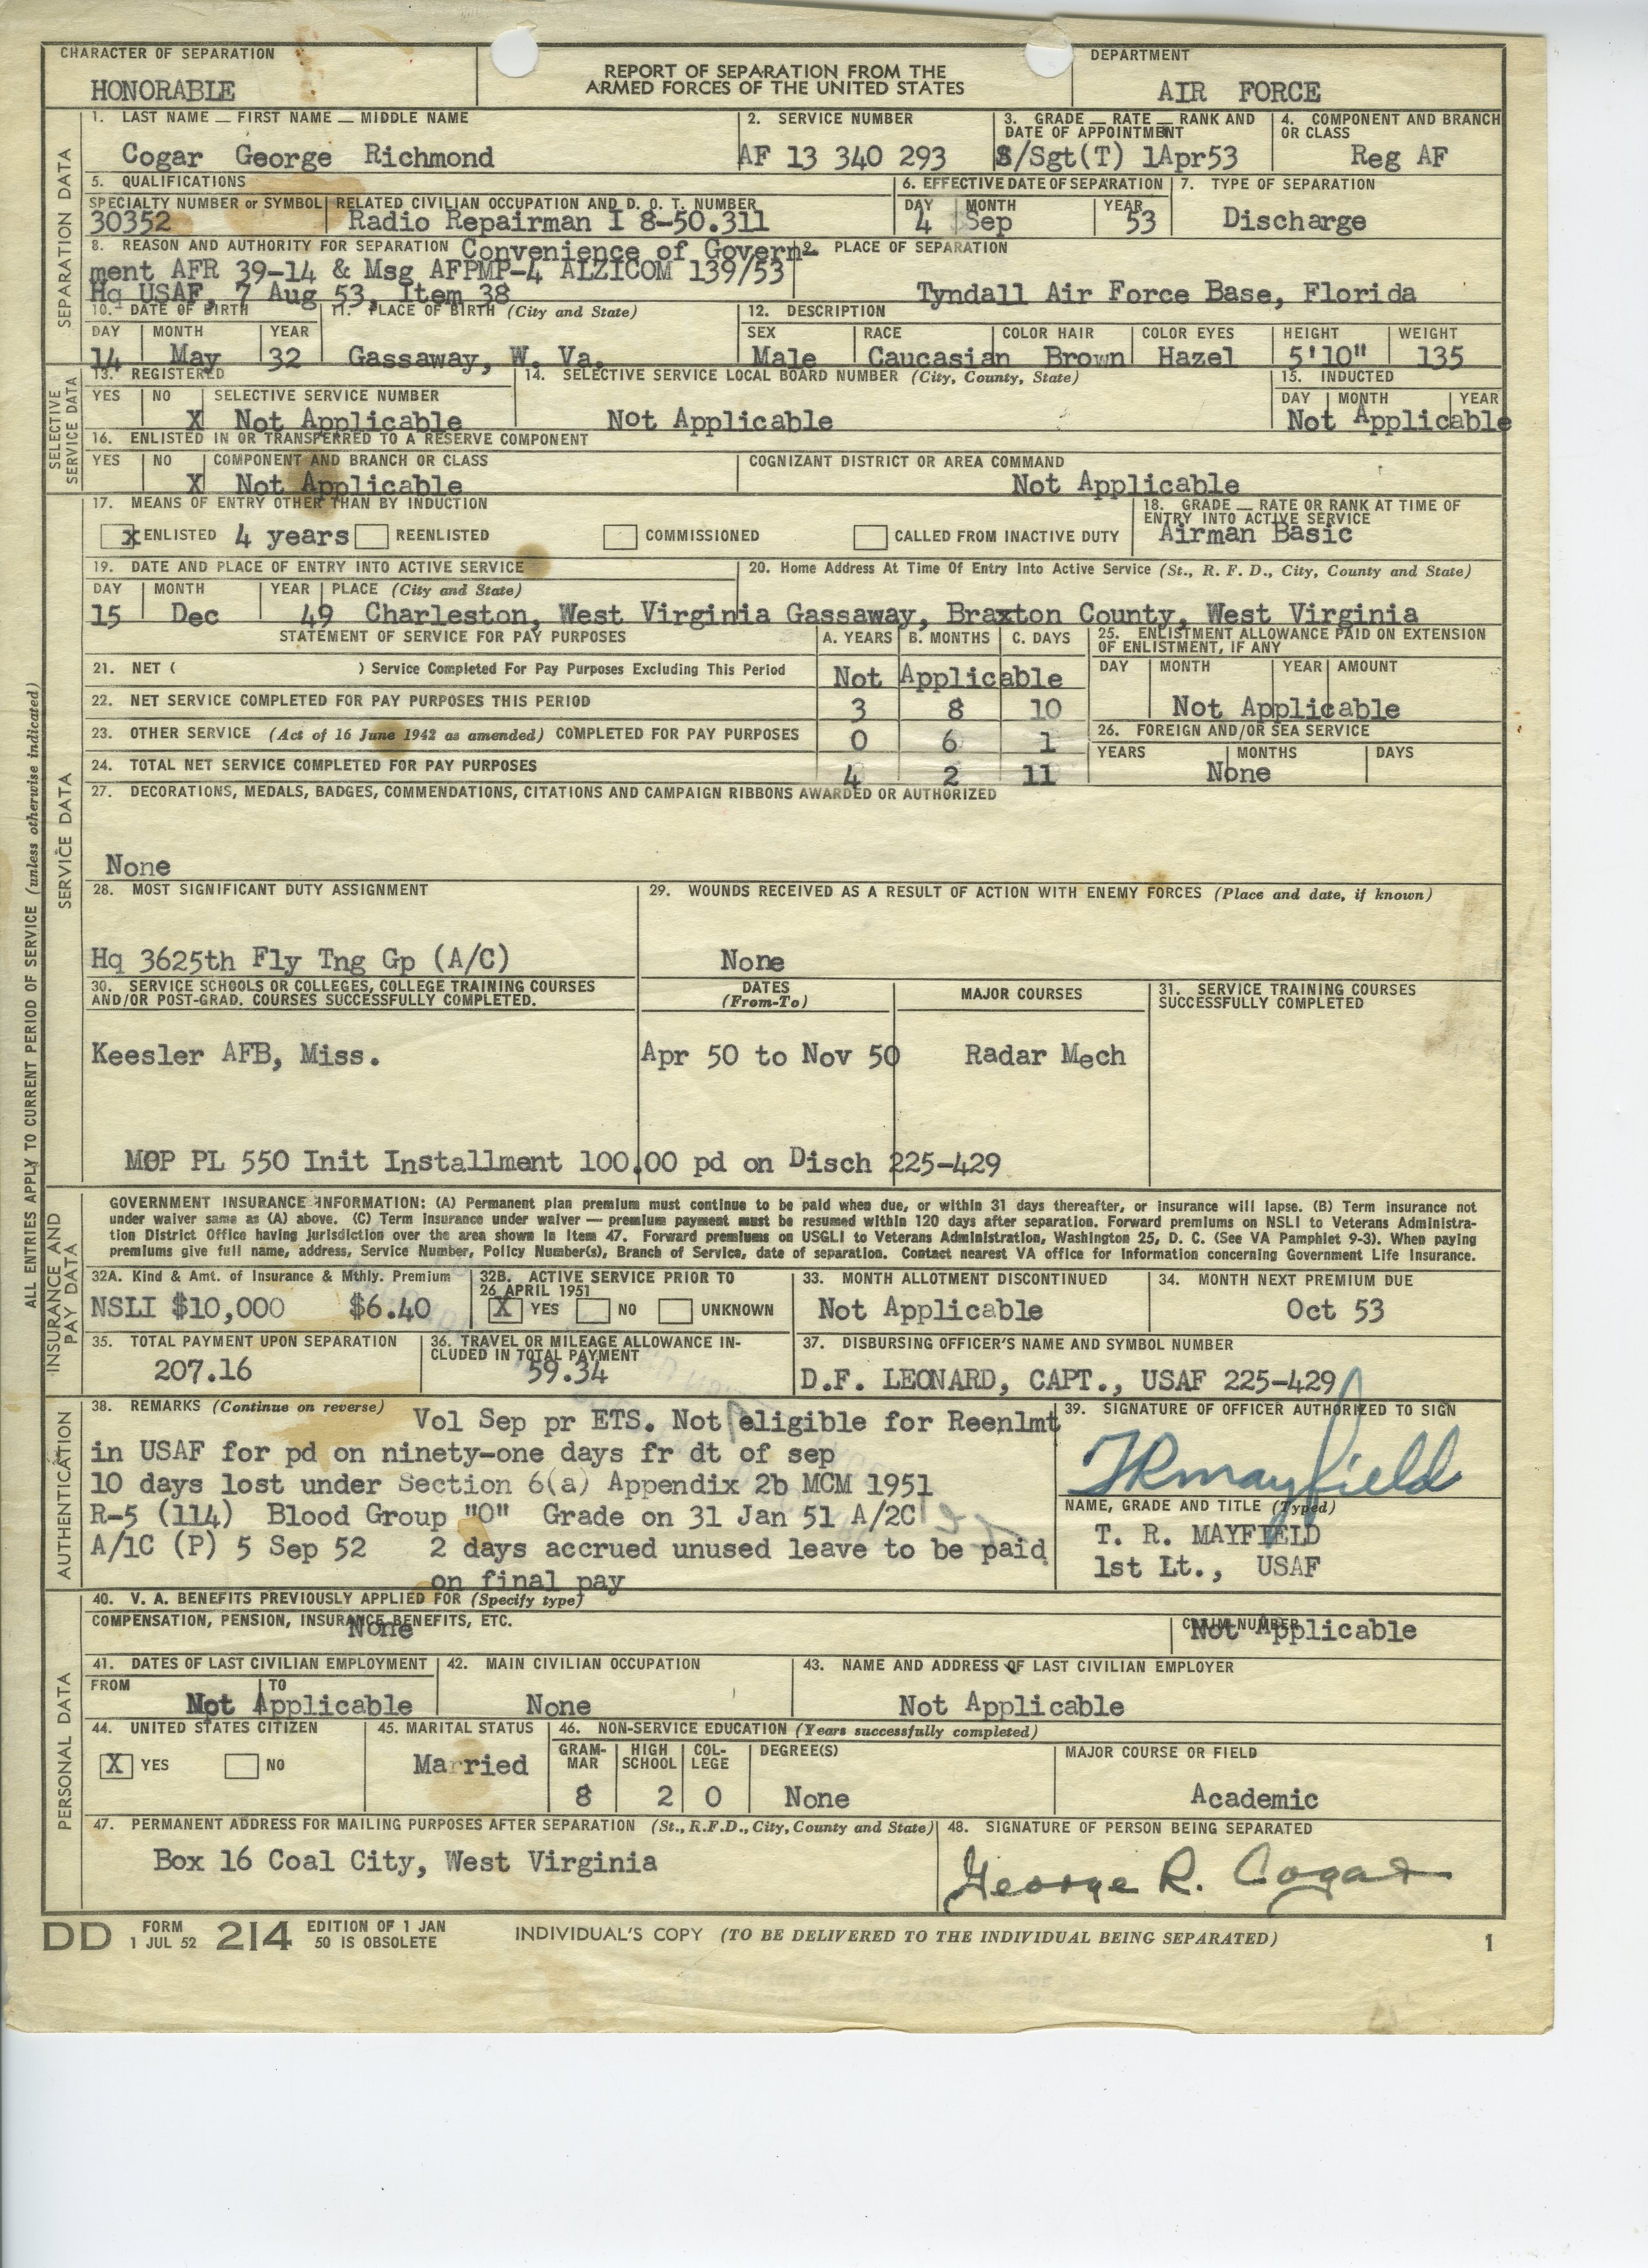 CHARACTER OF SEPARATION
HONORABLE
REPORT OF SEPARATION FROM THE
ARMED FORCES OF THE UNITED STATES
DEPARTMENT
AIR FORCE
SEPARATION DATA
1. LAST NAME — FIRST NAME — MIDDLE NAME
Cogar George Richmond
2. SERVICE NUMBER
AF 13 340 293
3. GRADE — RATE — RANK AND
DATE OF APPOINTMENT
S/Sgt(T) 1Apr53
4. COMPONENT AND BRANCH
OR CLASS
Reg AF
5. QUALIFICATIONS
SPECIALTY NUMBER or SYMBOL
30352
RELATED CIVILIAN OCCUPATION AND D. O. T. NUMBER
Radio Repairman I 8-50.311
6. EFFECTIVE DATE OF SEPARATION
DAY MONTH YEAR
4 Sep 53
7. TYPE OF SEPARATION
Discharge
8. REASON AND AUTHORITY FOR SEPARATION Convenience of Govern-
ment AFR 39-14 & Msg AFPMP-4 ALZICOM 139/53
Hq USAF, 7 Aug 53, Item 38
9. PLACE OF SEPARATION
Tyndall Air Force Base, Florida
10. DATE OF BIRTH
DAY MONTH YEAR
14 May 32
11. PLACE OF BIRTH (City and State)
Gassaway, W. Va.
12. DESCRIPTION
SEX RACE COLOR HAIR COLOR EYES HEIGHT WEIGHT
Male Caucasian Brown Hazel 5'10" 135
SELECTIVE
SERVICE DATA
13. REGISTERED
YES NO SELECTIVE SERVICE NUMBER
X Not Applicable
14. SELECTIVE SERVICE LOCAL BOARD NUMBER (City, County, State)
Not Applicable
15. INDUCTED
DAY MONTH YEAR
Not Applicable
16. ENLISTED IN OR TRANSFERRED TO A RESERVE COMPONENT
YES NO COMPONENT AND BRANCH OR CLASS
X Not Applicable
COGNIZANT DISTRICT OR AREA COMMAND
Not Applicable
ALL ENTRIES APPLY TO CURRENT PERIOD OF SERVICE (unless otherwise indicated)
SERVICE DATA
17. MEANS OF ENTRY OTHER THAN BY INDUCTION
x ENLISTED 4 years REENLISTED COMMISSIONED CALLED FROM INACTIVE DUTY
18. GRADE — RATE OR RANK AT TIME OF
ENTRY INTO ACTIVE SERVICE
Airman Basic
19. DATE AND PLACE OF ENTRY INTO ACTIVE SERVICE
DAY MONTH YEAR PLACE (City and State)
15 Dec 49 Charleston, West Virginia
20. Home Address At Time Of Entry Into Active Service (St., R. F. D., City, County and State)
Gassaway, Braxton County, West Virginia
STATEMENT OF SERVICE FOR PAY PURPOSES
A. YEARS B. MONTHS C. DAYS
21. NET ( ) Service Completed For Pay Purposes Excluding This Period
Not Applicable
22. NET SERVICE COMPLETED FOR PAY PURPOSES THIS PERIOD
3 8 10
23. OTHER SERVICE (Act of 16 June 1942 as amended) COMPLETED FOR PAY PURPOSES
0 6 1
24. TOTAL NET SERVICE COMPLETED FOR PAY PURPOSES
4 2 11
25. ENLISTMENT ALLOWANCE PAID ON EXTENSION
OF ENLISTMENT, IF ANY
DAY MONTH YEAR AMOUNT
Not Applicable
26. FOREIGN AND/OR SEA SERVICE
YEARS MONTHS DAYS
None
27. DECORATIONS, MEDALS, BADGES, COMMENDATIONS, CITATIONS AND CAMPAIGN RIBBONS AWARDED OR AUTHORIZED
None
28. MOST SIGNIFICANT DUTY ASSIGNMENT
Hq 3625th Fly Tng Gp (A/C)
29. WOUNDS RECEIVED AS A RESULT OF ACTION WITH ENEMY FORCES (Place and date, if known)
None
30. SERVICE SCHOOLS OR COLLEGES, COLLEGE TRAINING COURSES
AND/OR POST-GRAD. COURSES SUCCESSFULLY COMPLETED.
DATES
(From-To)
MAJOR COURSES
31. SERVICE TRAINING COURSES
SUCCESSFULLY COMPLETED
Keesler AFB, Miss. Apr 50 to Nov 50 Radar Mech
MOP PL 550 Init Installment 100.00 pd on Disch 225-429
INSURANCE AND
PAY DATA
GOVERNMENT INSURANCE INFORMATION: (A) Permanent plan premium must continue to be paid when due, or within 31 days thereafter, or insurance will lapse. (B) Term insurance not
under waiver same as (A) above. (C) Term insurance under waiver — premium payment must be resumed within 120 days after separation. Forward premiums on NSLI to Veterans Administra-
tion District Office having jurisdiction over the area shown in Item 47. Forward premiums on USGLI to Veterans Administration, Washington 25, D. C. (See VA Pamphlet 9-3). When paying
premiums give full name, address, Service Number, Policy Number(s), Branch of Service, date of separation. Contact nearest VA office for information concerning Government Life Insurance.
32A. Kind & Amt. of Insurance & Mthly. Premium
NSLI $10,000 $6.40
32B. ACTIVE SERVICE PRIOR TO
26 APRIL 1951
X YES NO UNKNOWN
33. MONTH ALLOTMENT DISCONTINUED
Not Applicable
34. MONTH NEXT PREMIUM DUE
Oct 53
35. TOTAL PAYMENT UPON SEPARATION
207.16
36. TRAVEL OR MILEAGE ALLOWANCE IN-
CLUDED IN TOTAL PAYMENT
59.34
37. DISBURSING OFFICER'S NAME AND SYMBOL NUMBER
D.F. LEONARD, CAPT., USAF 225-429
AUTHENTICATION
38. REMARKS (Continue on reverse) Vol Sep pr ETS. Not eligible for Reenlmt
in USAF for pd on ninety-one days fr dt of sep
10 days lost under Section 6(a) Appendix 2b MCM 1951
R-5 (114) Blood Group "O" Grade on 31 Jan 51 A/2C
A/1C (P) 5 Sep 52 2 days accrued unused leave to be paid
on final pay
39. SIGNATURE OF OFFICER AUTHORIZED TO SIGN
TRMayfield
NAME, GRADE AND TITLE (Typed)
T. R. MAYFIELD
1st Lt., USAF
PERSONAL DATA
40. V. A. BENEFITS PREVIOUSLY APPLIED FOR (Specify type)
COMPENSATION, PENSION, INSURANCE BENEFITS, ETC.
None
CLAIM NUMBER
Not Applicable
41. DATES OF LAST CIVILIAN EMPLOYMENT
FROM TO
Not Applicable
42. MAIN CIVILIAN OCCUPATION
None
43. NAME AND ADDRESS OF LAST CIVILIAN EMPLOYER
Not Applicable
44. UNITED STATES CITIZEN
X YES NO
45. MARITAL STATUS
Married
46. NON-SERVICE EDUCATION (Years successfully completed)
GRAM-
MAR
8
HIGH
SCHOOL
2
COL-
LEGE
0
DEGREE(S)
None
MAJOR COURSE OR FIELD
Academic
47. PERMANENT ADDRESS FOR MAILING PURPOSES AFTER SEPARATION (St., R.F.D., City, County and State)
Box 16 Coal City, West Virginia
48. SIGNATURE OF PERSON BEING SEPARATED
George R. Cogar
DD FORM 1 JUL 52 214 EDITION OF 1 JAN 50 IS OBSOLETE
INDIVIDUAL'S COPY (TO BE DELIVERED TO THE INDIVIDUAL BEING SEPARATED)
1